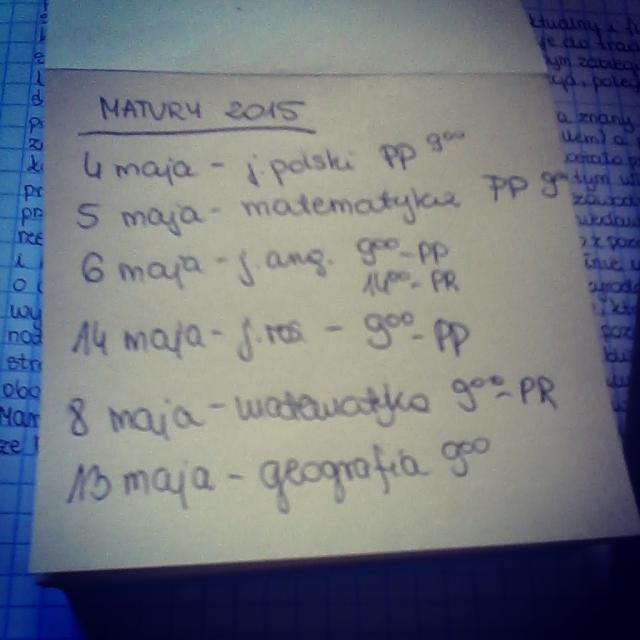 MATURY 2015
4 maja - j. polski PP 9⁰⁰
5 maja - matematyka PP 9⁰⁰
6 maja - j. ang. 9⁰⁰ - PP
14⁰⁰ - PR
14 maja - j. ros - 9⁰⁰ - PP
8 maja - matematyka 9⁰⁰ - PR
13 maja - geografia 9⁰⁰